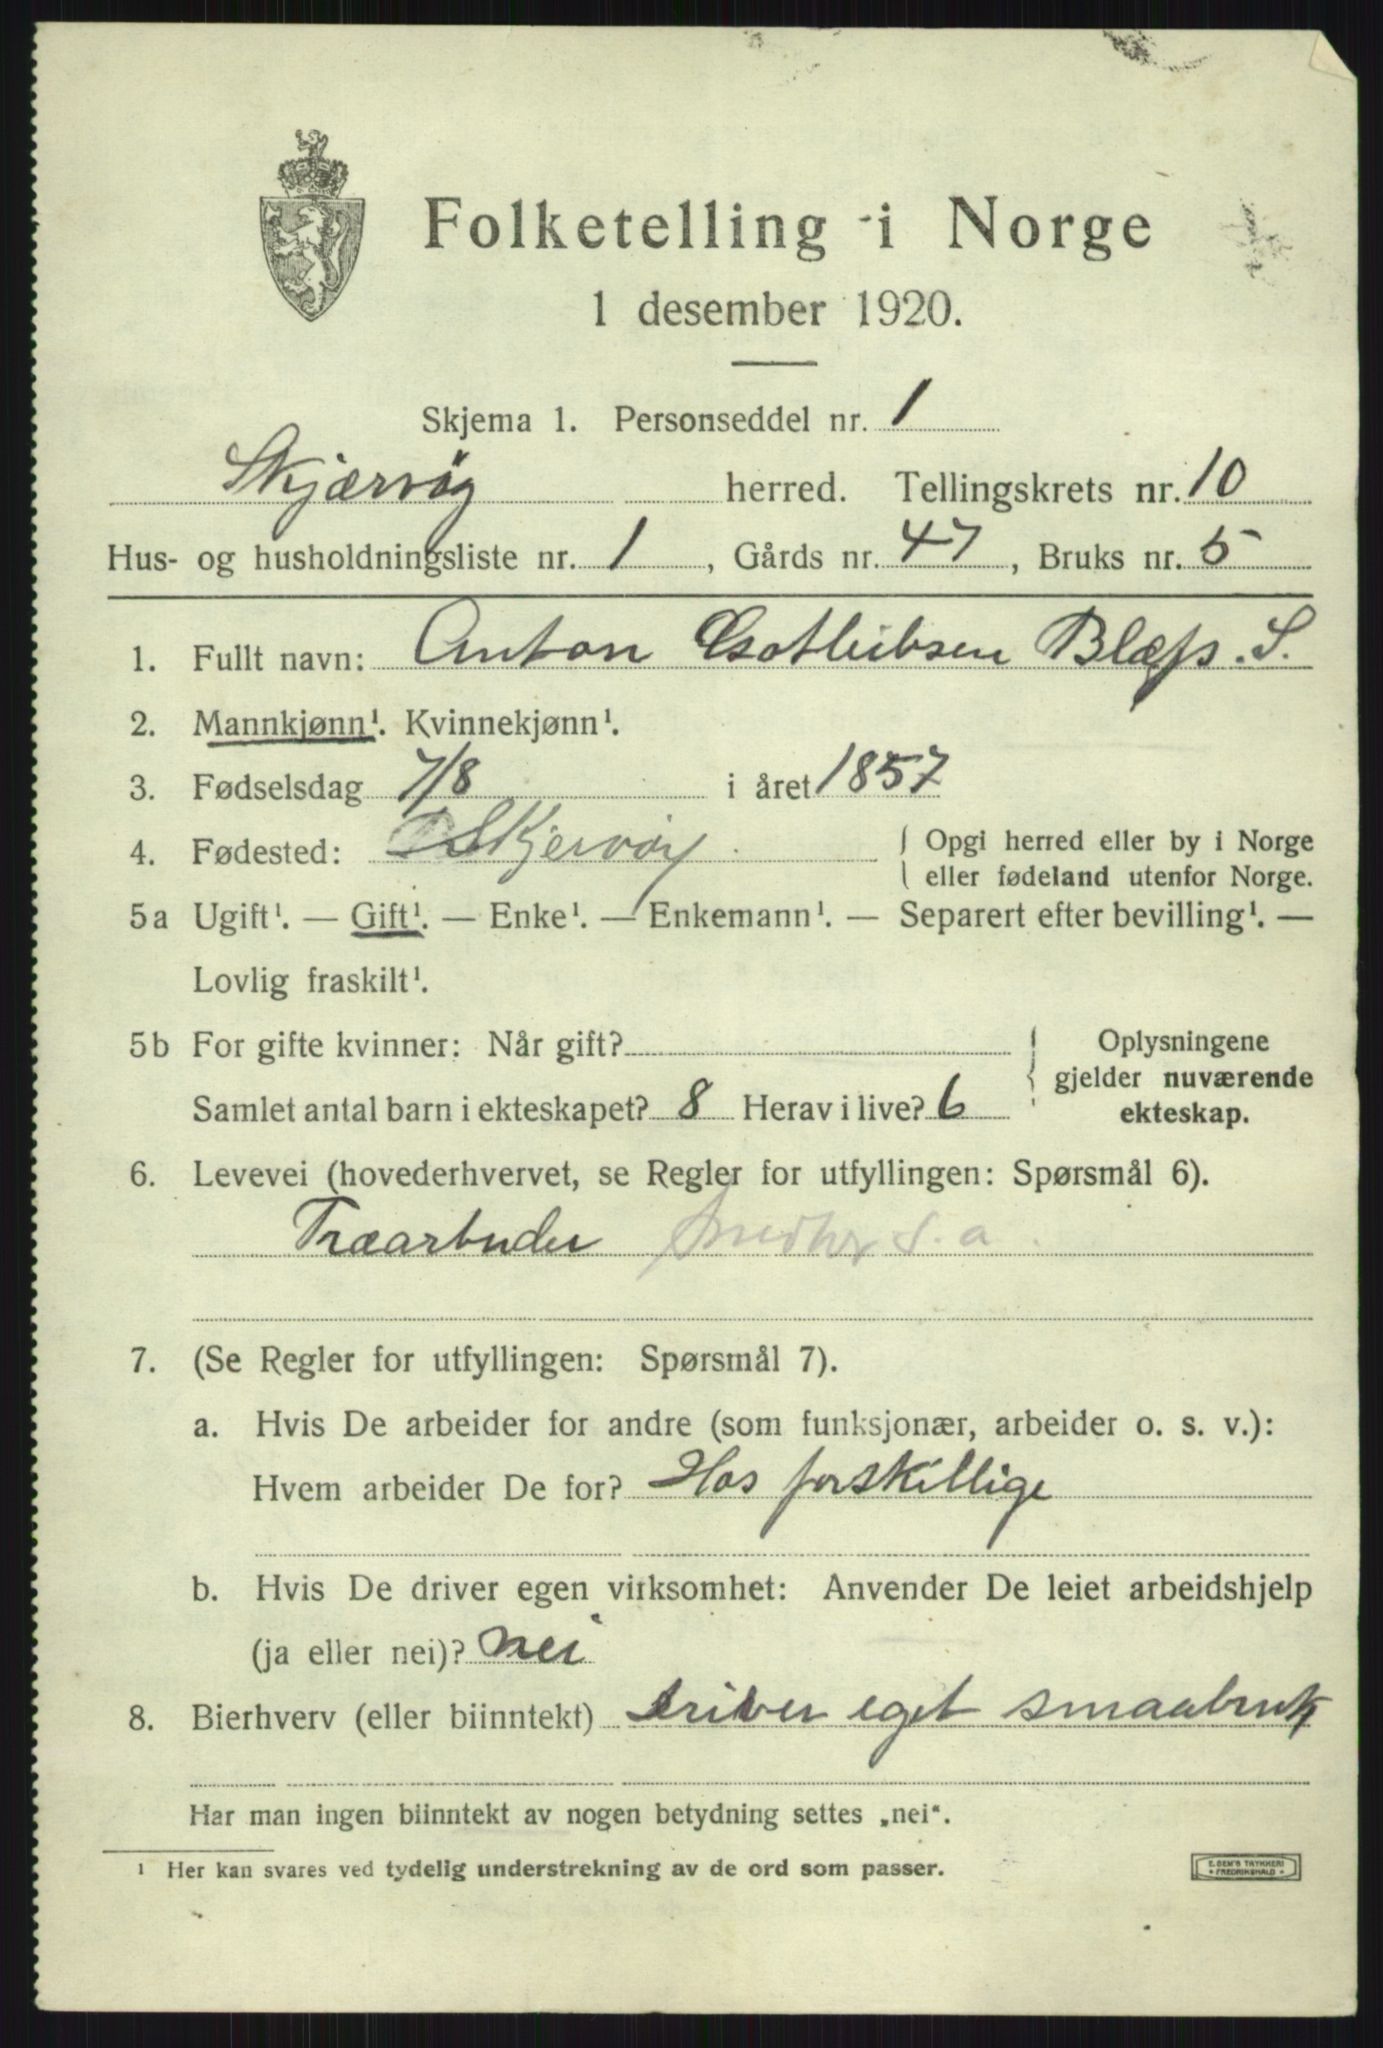 Folketelling i Norge
1 desember 1920.
Skjema 1. Personseddel nr. 1
Skjærvøy herred. Tellingskrets nr. 10
Hus- og husholdningsliste nr. 1, Gårds nr. 47, Bruks nr. 5
1. Fullt navn: Anton Gotleibsen Blæs. S.
2. Mannkjønn¹. Kvinnekjønn¹.
3. Fødselsdag 7/8 i året 1857
4. Fødested: Skjervøy. { Opgi herred eller by i Norge
eller fødeland utenfor Norge.
5a Ugift¹. — Gift¹. — Enke¹. — Enkemann¹. — Separert efter bevilling¹. —
Lovlig fraskilt¹.
5b For gifte kvinner: Når gift? { Oplysningene
gjelder nuværende
Samlet antal barn i ekteskapet? 8 Herav i live? 6 ekteskap.
6. Levevei (hovederhvervet, se Regler for utfyllingen: Spørsmål 6).
Træarbeider s.a.
7. (Se Regler for utfyllingen: Spørsmål 7).
a. Hvis De arbeider for andre (som funksjonær, arbeider o. s. v.):
Hvem arbeider De for? Hos forskillige
b. Hvis De driver egen virksomhet: Anvender De leiet arbeidshjelp
(ja eller nei)? nei
8. Bierhverv (eller biinntekt) driver eget smaabruk
Har man ingen biinntekt av nogen betydning settes „nei“.
¹ Her kan svares ved tydelig understrekning av de ord som passer.
E. SEM'S TRYKKERI
FREDRIKSHALD